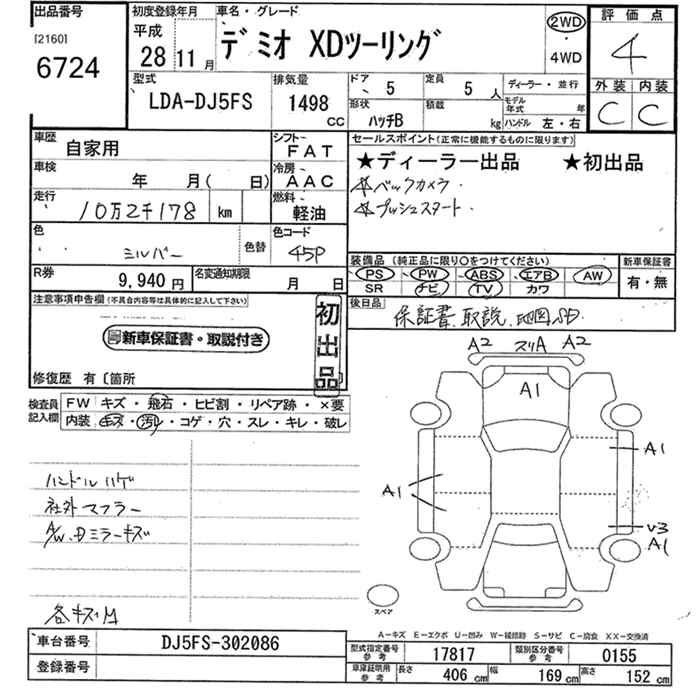 出品番号 初度登録年月 車名・グレード 2WD 評価点
[2160] 平成 デミオ XDツーリング
6724 28 11月 4WD 4
型式 排気量 ドア 5 定員 5人 ディーラー・並行 外装 内装
LDA-DJ5FS 1498 CC 形状 ハッチB 積載 kg モデル年式 年 C C
ハンドル 左・右
車歴 自家用 シフト FAT セールスポイント(正常に機能するものに限ります)
車検 年 月(日) 冷房 AAC ★ディーラー出品 ★初出品
走行 10万2千178 km 燃料 軽油 バックカメラ.
プッシュスタート.
色 シルバー 色替 色コード 45P
装備品 (純正品に限り○をつけてください) 新車保証書
R券 9,940円 名変通知期限 月 日 PS PW ABS エアB AW 有・無
SR ナビ TV カワ
注意事項申告欄(不具合内容等は具体的に記入して下さい) 後日品
初出品 保証書.取説.地図.SD.
新車保証書・取説付き
修復歴 有〔箇所
A2 スリA A2
A1
検査員記入欄 FW キズ・飛石・ヒビ割・リペア跡・×要
内装 キズ・汚レ・コゲ・穴・スレ・キレ・破レ
A1
ハンドルハゲ
A1
社外マフラー
V3
A1
スペア
各キズM
A-キズ E-エクボ U-凹み W-補修跡 S-サビ C-腐食 XX-交換済
車台番号 DJ5FS-302086 型式指定番号 参考 17817 類別区分番号 参考 0155
登録番号 車庫証明用 参考 長さ 406 cm 幅 169 cm 高さ 152 cm